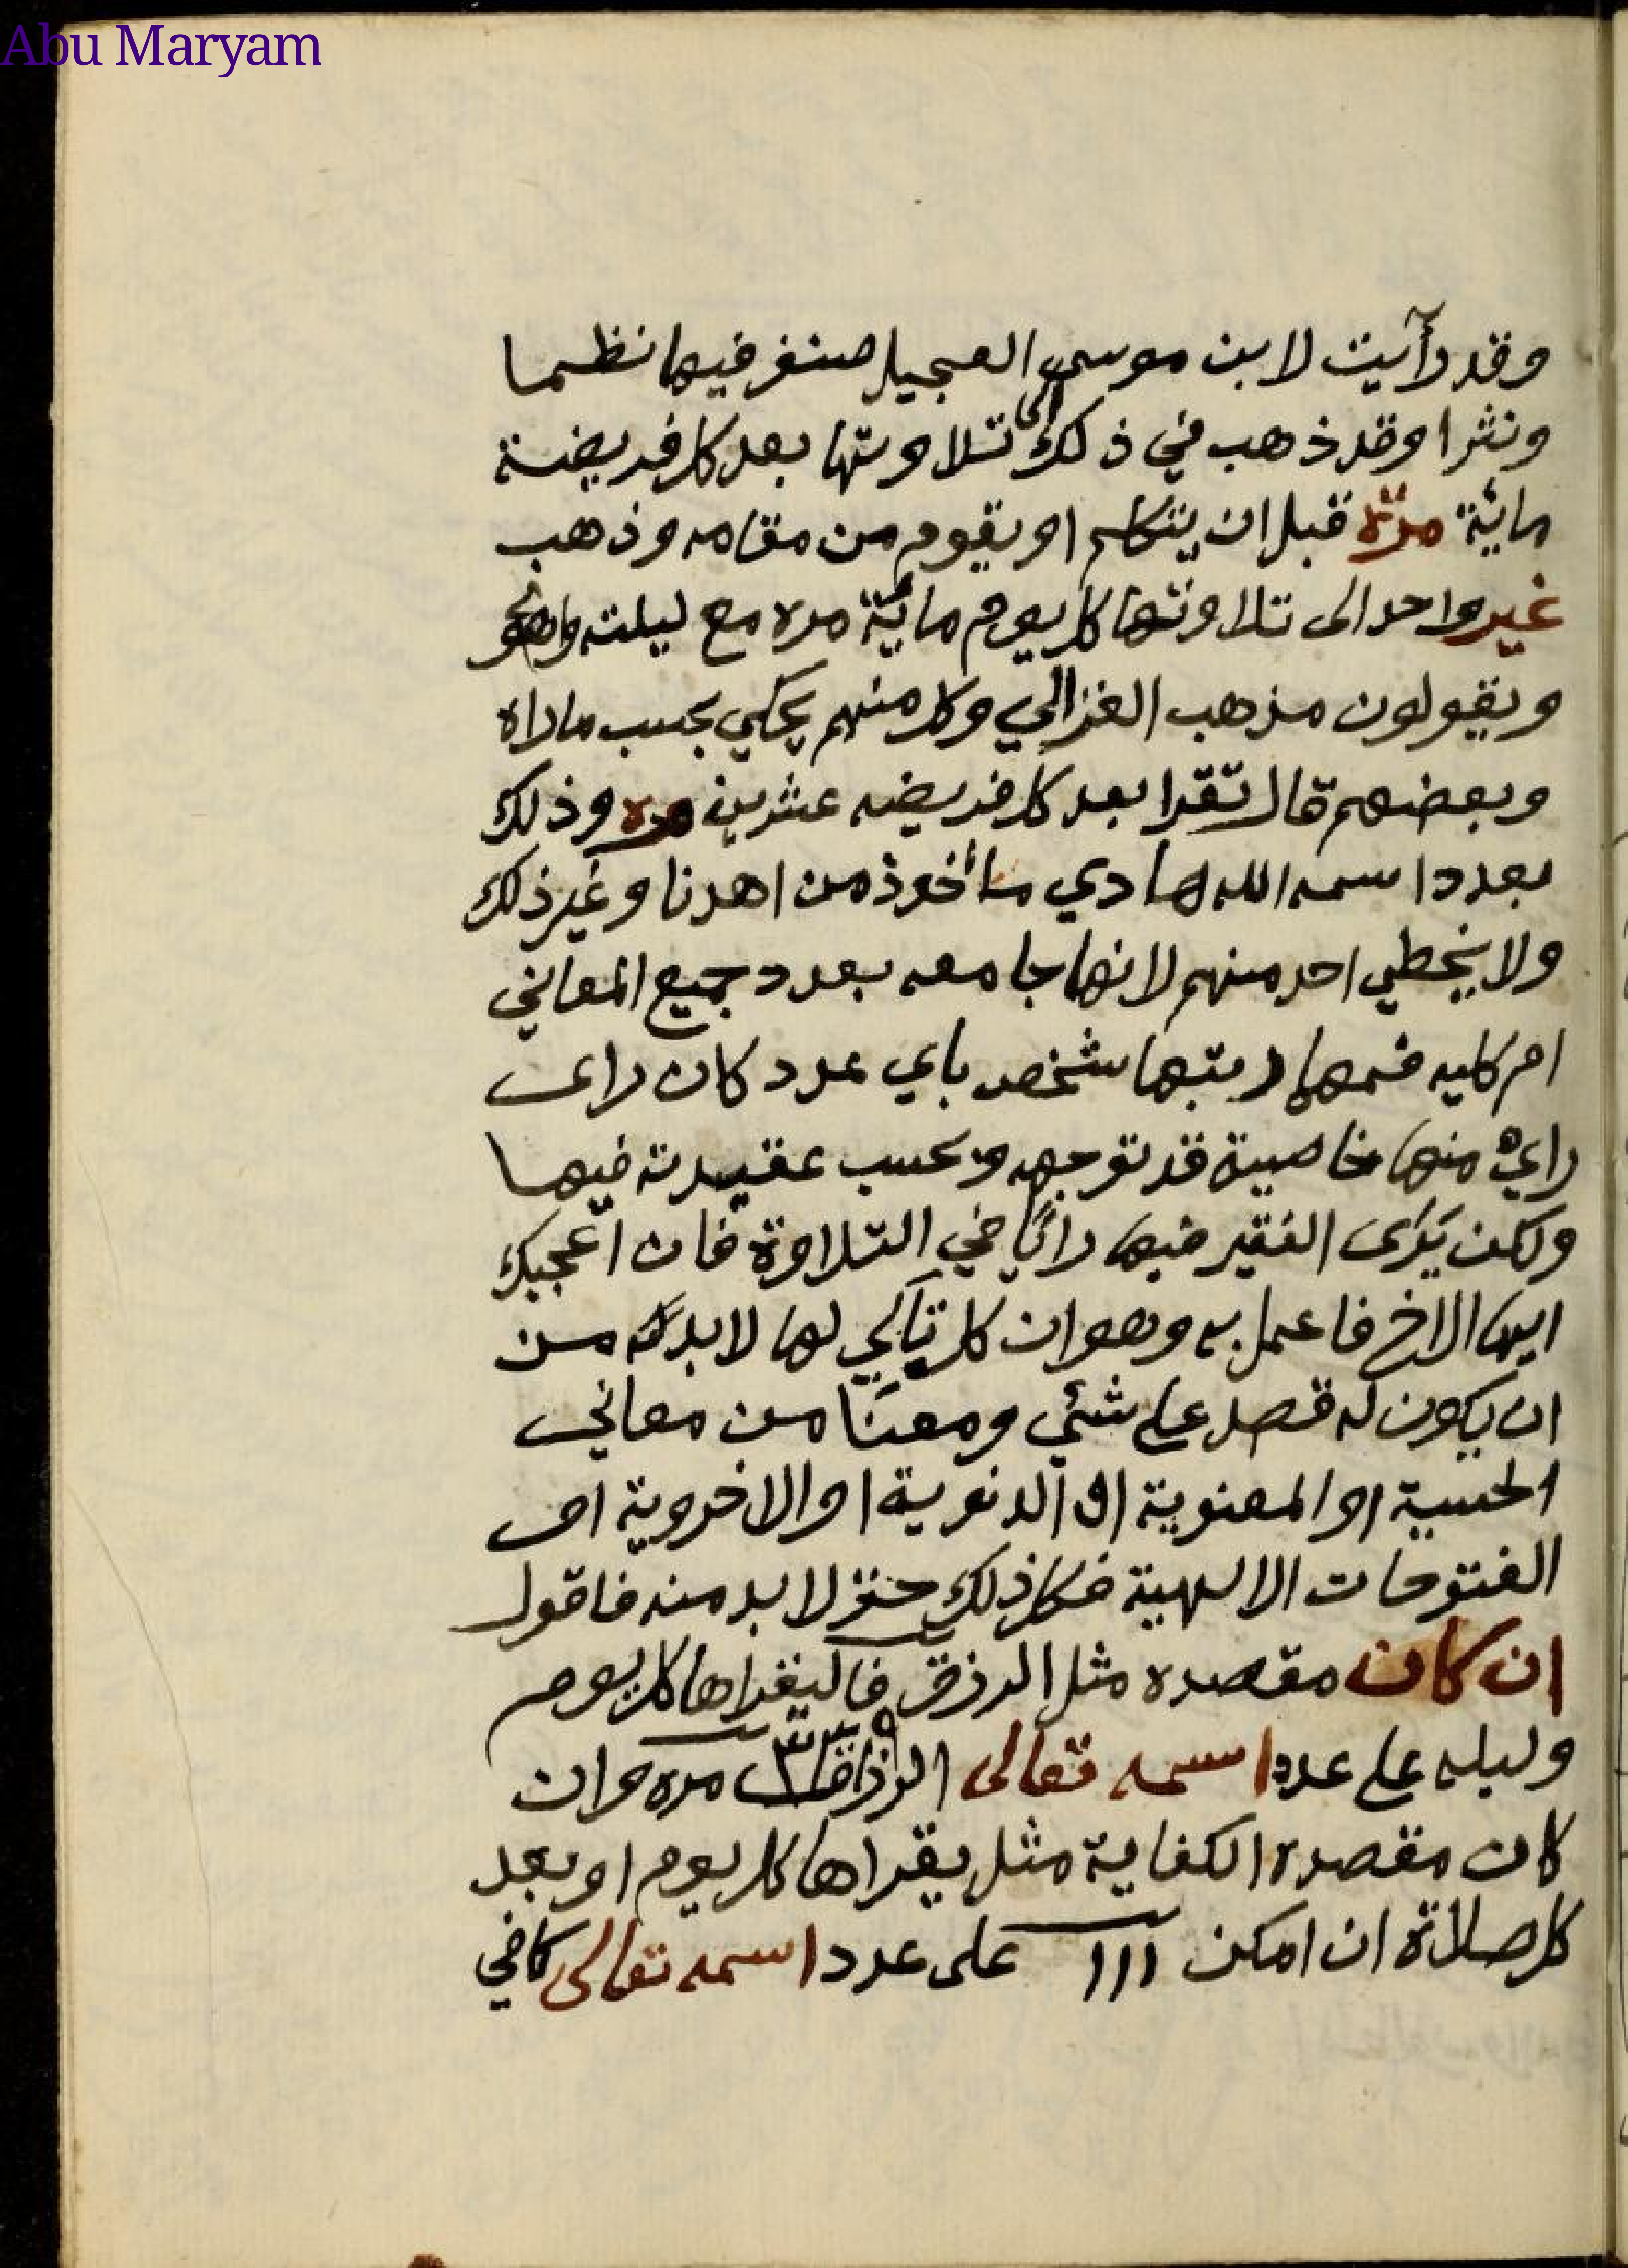 Abu Maryam
وقد رأيت لابن موسى العجيل صنف فيها نظما
ونثرا وقد ذهب في ذلك الى تلاوتها بعد كل فريضة
مائة مرة قبل ان يتكلم او يقوم من مقامه وذهب
غير واحد الى تلاوتها كل يوم مائة مره مع ليلته
ويقولون مذهب الغزالي وكل منهم يحكي بحسب ماراه
وبعضهم قال تقرا بعد كل فريضه عشرين مره وذلك
بعدد اسمه الله هادي مأخوذ من اهدنا وغير ذلك
ولا يخطي احد منهم لانها جامعه بعدد جميع المعاني
ام كليه فمهما رتبها شخص باي عدد كان راى
راي منها خاصية قد توجهه وبحسب عقيدته فيها
ولكن يَرَى الفقير فيها رائًا في التلاوة فان اعجبك
ايها الاخ فاعمل به وهو ان كل تالي لها لابد له من
ان يكون له قصد على شئي ومعنًا من معاني
الحسية او المعنوية او الدنوية او الاخروية او
الفتوحات الالهية فكل ذلك حق لابد منه فاقول
ان كان مقصده مثل الرزق فاليقراها كل يوم
وليله على عدد اسمه تعالى الرزاق مره وان
كان مقصده الكفاية مثل يقراها كل يوم او بعد
كل صلاة ان امكن ١١١ على عدد اسمه تعالى كافي